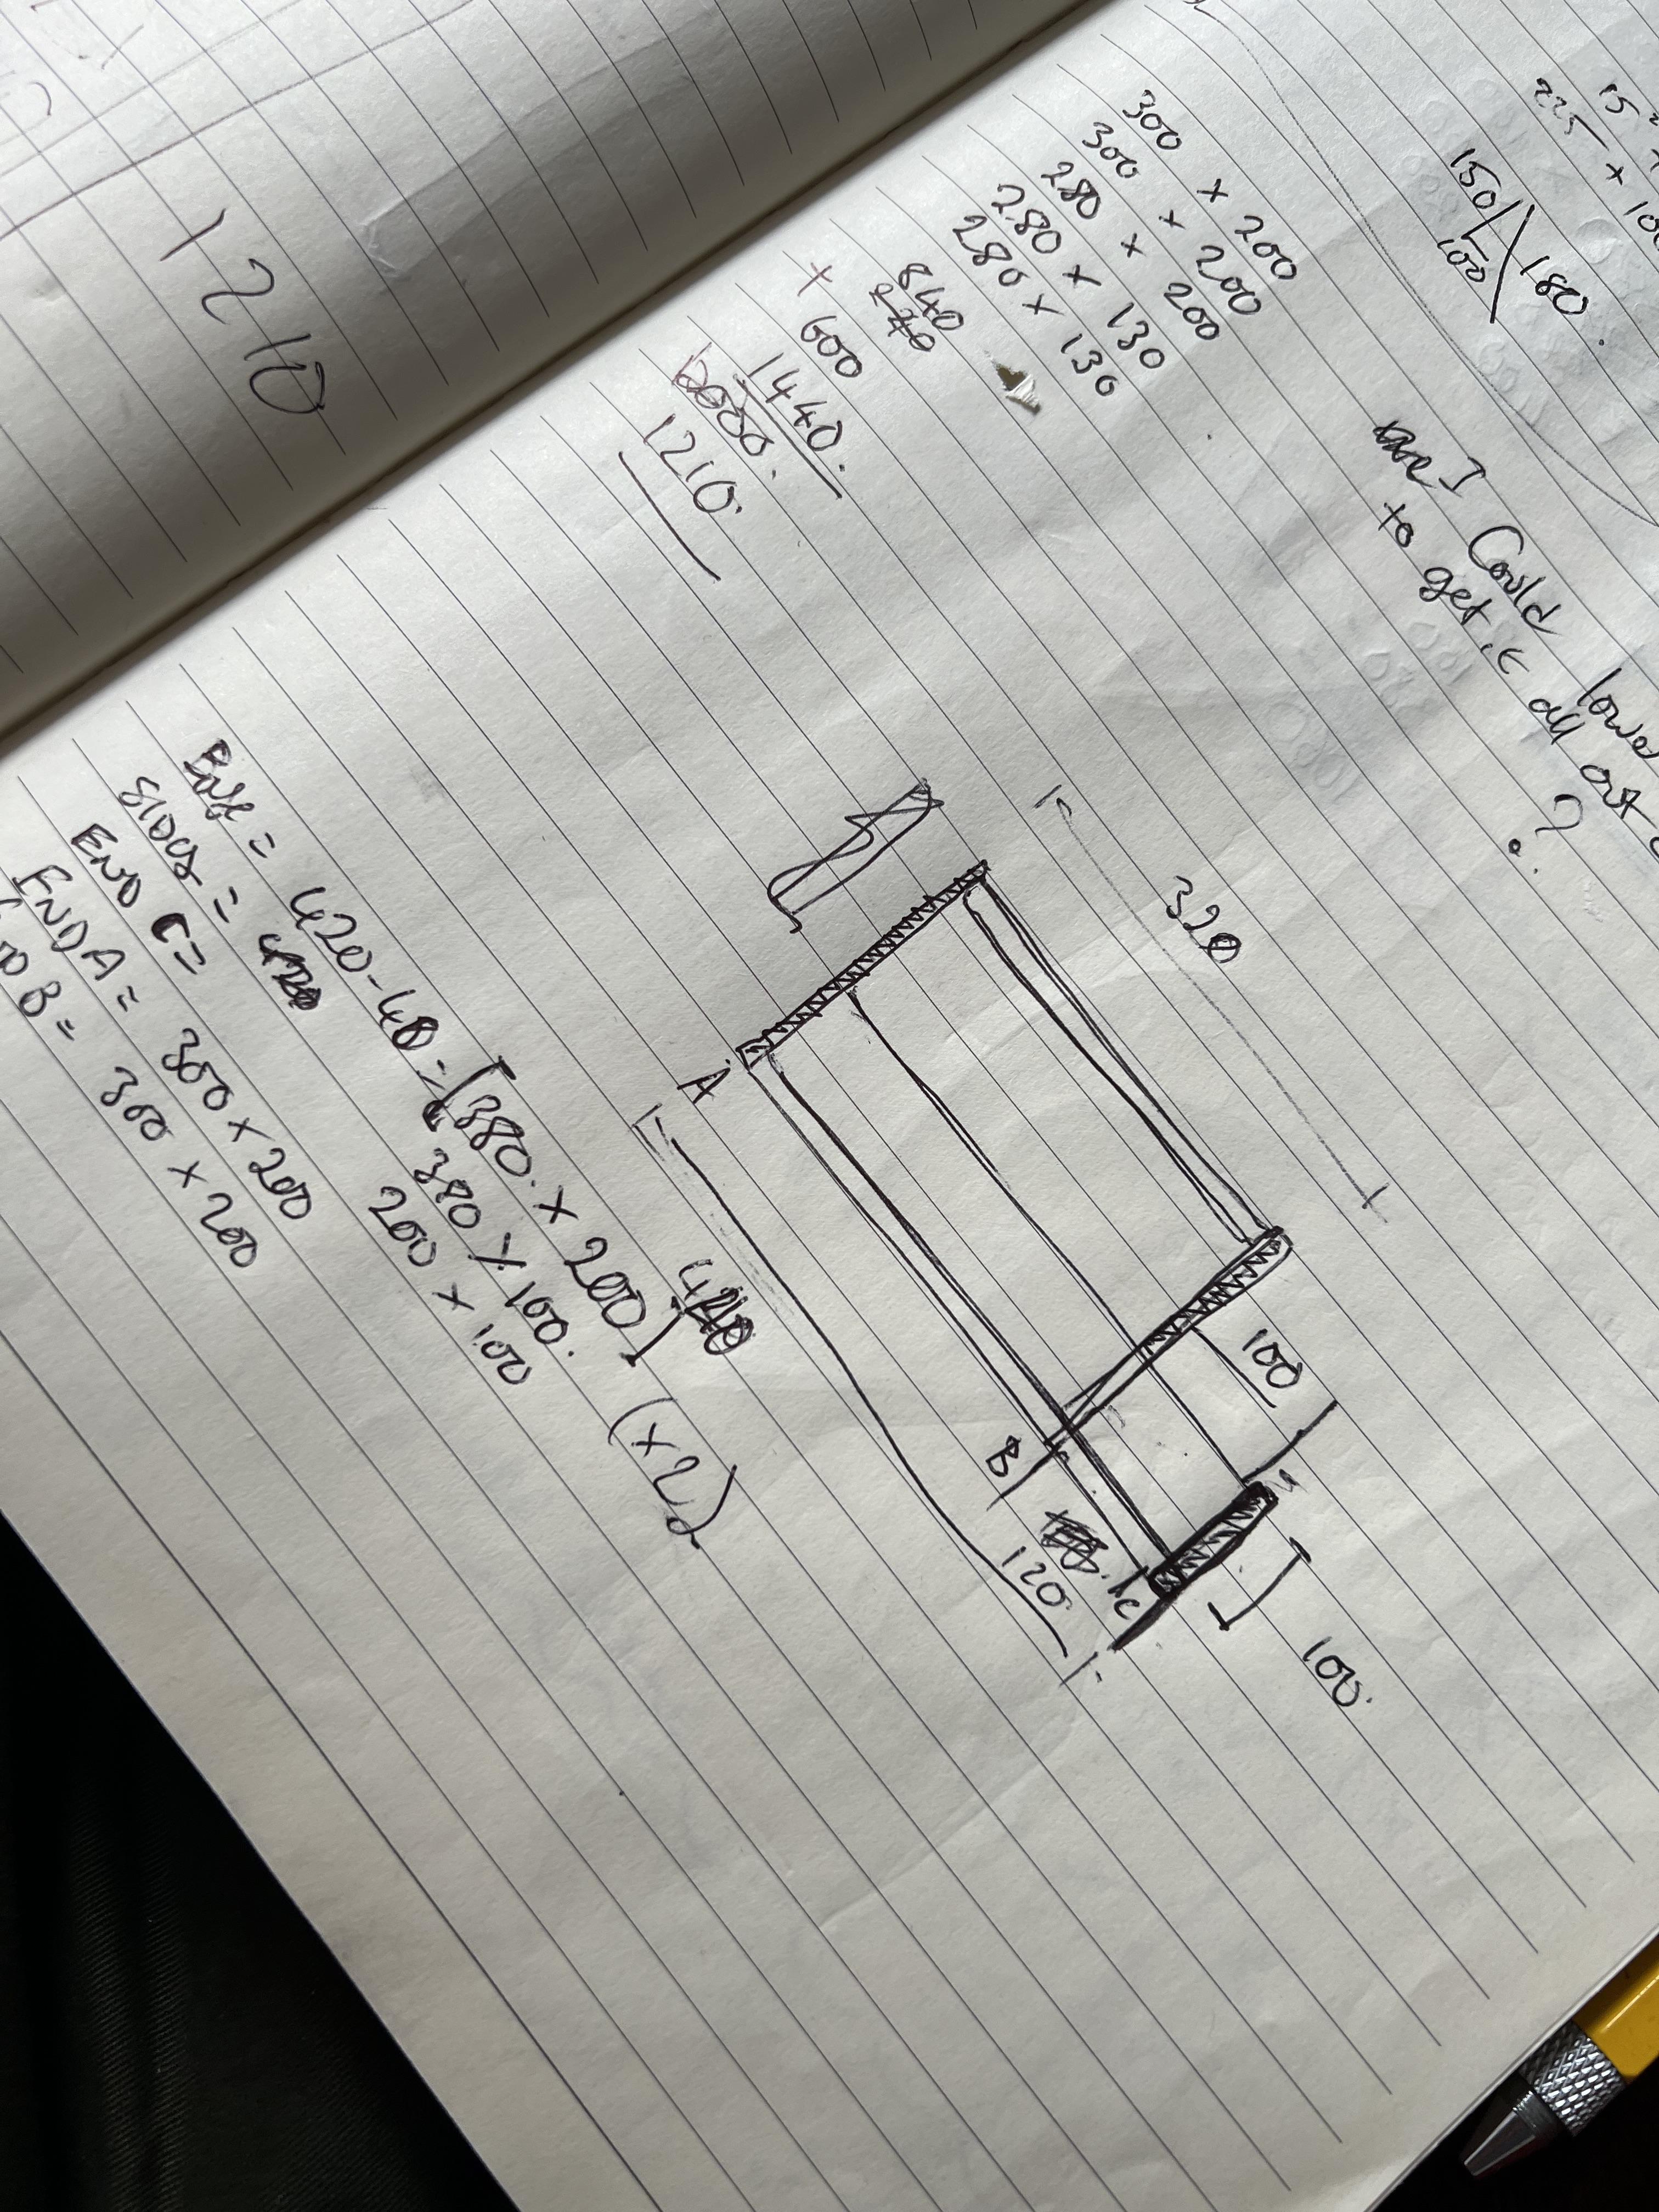 1210
15
225 × 100
150/180
100
300 × 200
300 × 200
280 × 200
280 × 130
280 × 130
840
+ 600
1440.
1210.
I Could lowe
to get it all out
?
320
A
100
B
120.
C
100.
Base = 420-40 = [380. × 200]
SIDES = 380 × 100. (×2)
END C = 200 × 100
END A = 300 × 200
B = 300 × 200